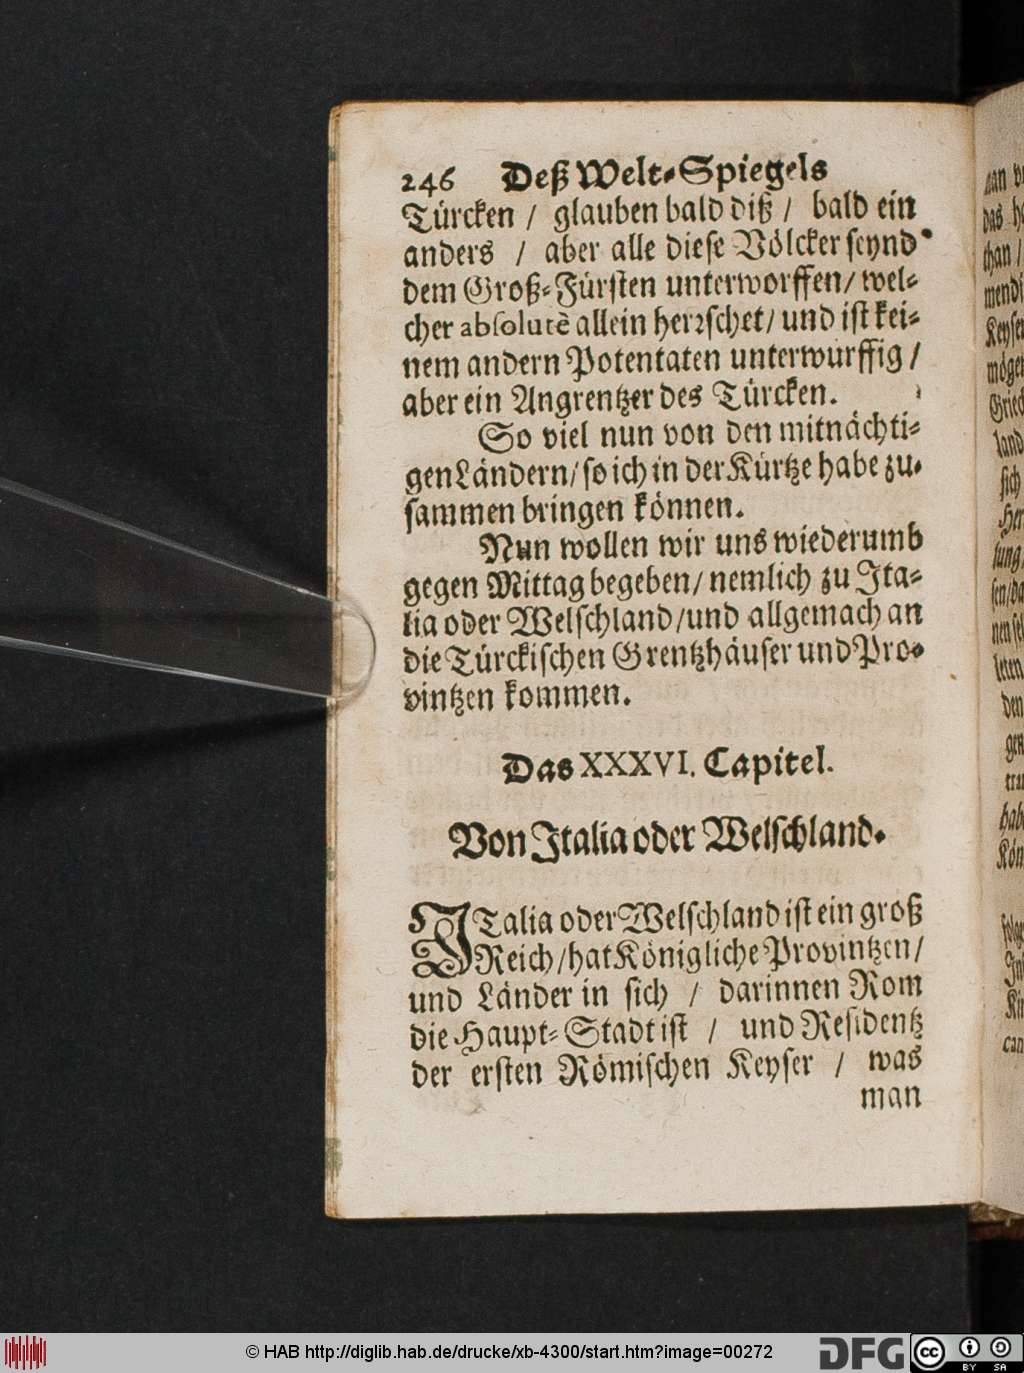 246 Deß Welt-Spiegels
Türcken / glauben bald diß / bald ein
anders / aber alle diese Völcker seynd
dem Groß-Fürsten unterworffen/ wel-
cher absolutè allein herrschet/ und ist kei-
nem andern Potentaten unterwurffig /
aber ein Angrentzer des Türcken.
So viel nun von den mitnächti-
gen Ländern/ so ich in der Kürtze habe zu-
sammen bringen können.
Nun wollen wir uns wiederumb
gegen Mittag begeben/ nemlich zu Ita-
lia oder Welschland/und allgemach an
die Türckischen Grentzhäuser und Pro-
vintzen kommen.
Das XXXVI. Capitel.
Von Italia oder Welschland.
ITalia oder Welschland ist ein groß
Reich/hat Königliche Provintzen/
und Länder in sich / darinnen Rom
die Haupt-Stadt ist / und Residentz
der ersten Römischen Keyser / was
man
© HAB http://diglib.hab.de/drucke/xb-4300/start.htm?image=00272
DFG
cc BY SA